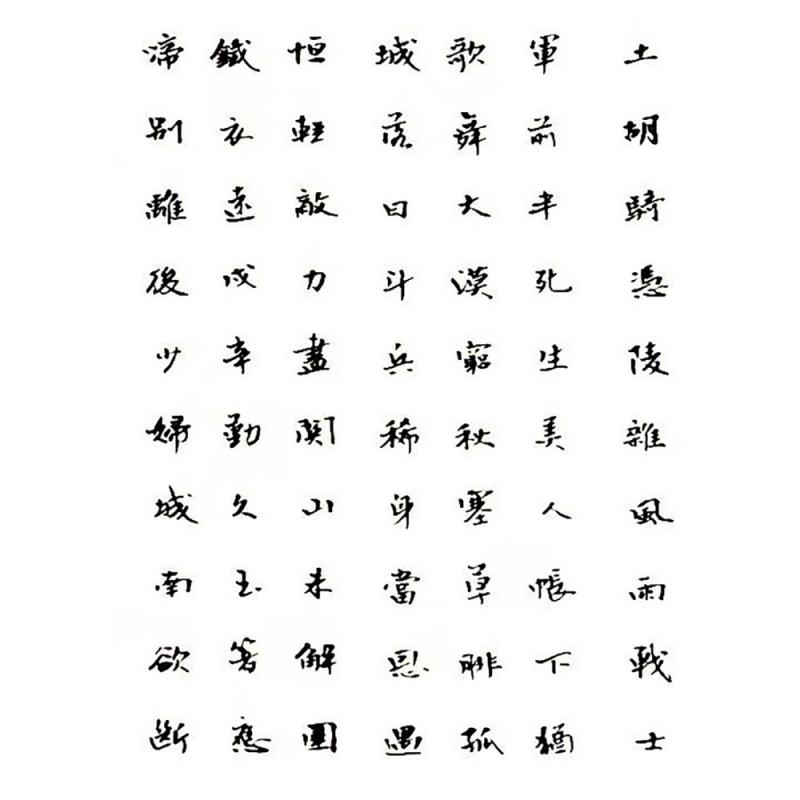 土胡騎憑陵雜風雨戰士
軍前半死生美人帳下猶
歌舞大漠窮秋塞草腓孤
城落日斗兵稀身當恩遇
恒輕敵力盡関山未解圍
鐵衣遠戍辛勤久玉箸應
啼別離後少婦城南欲斷